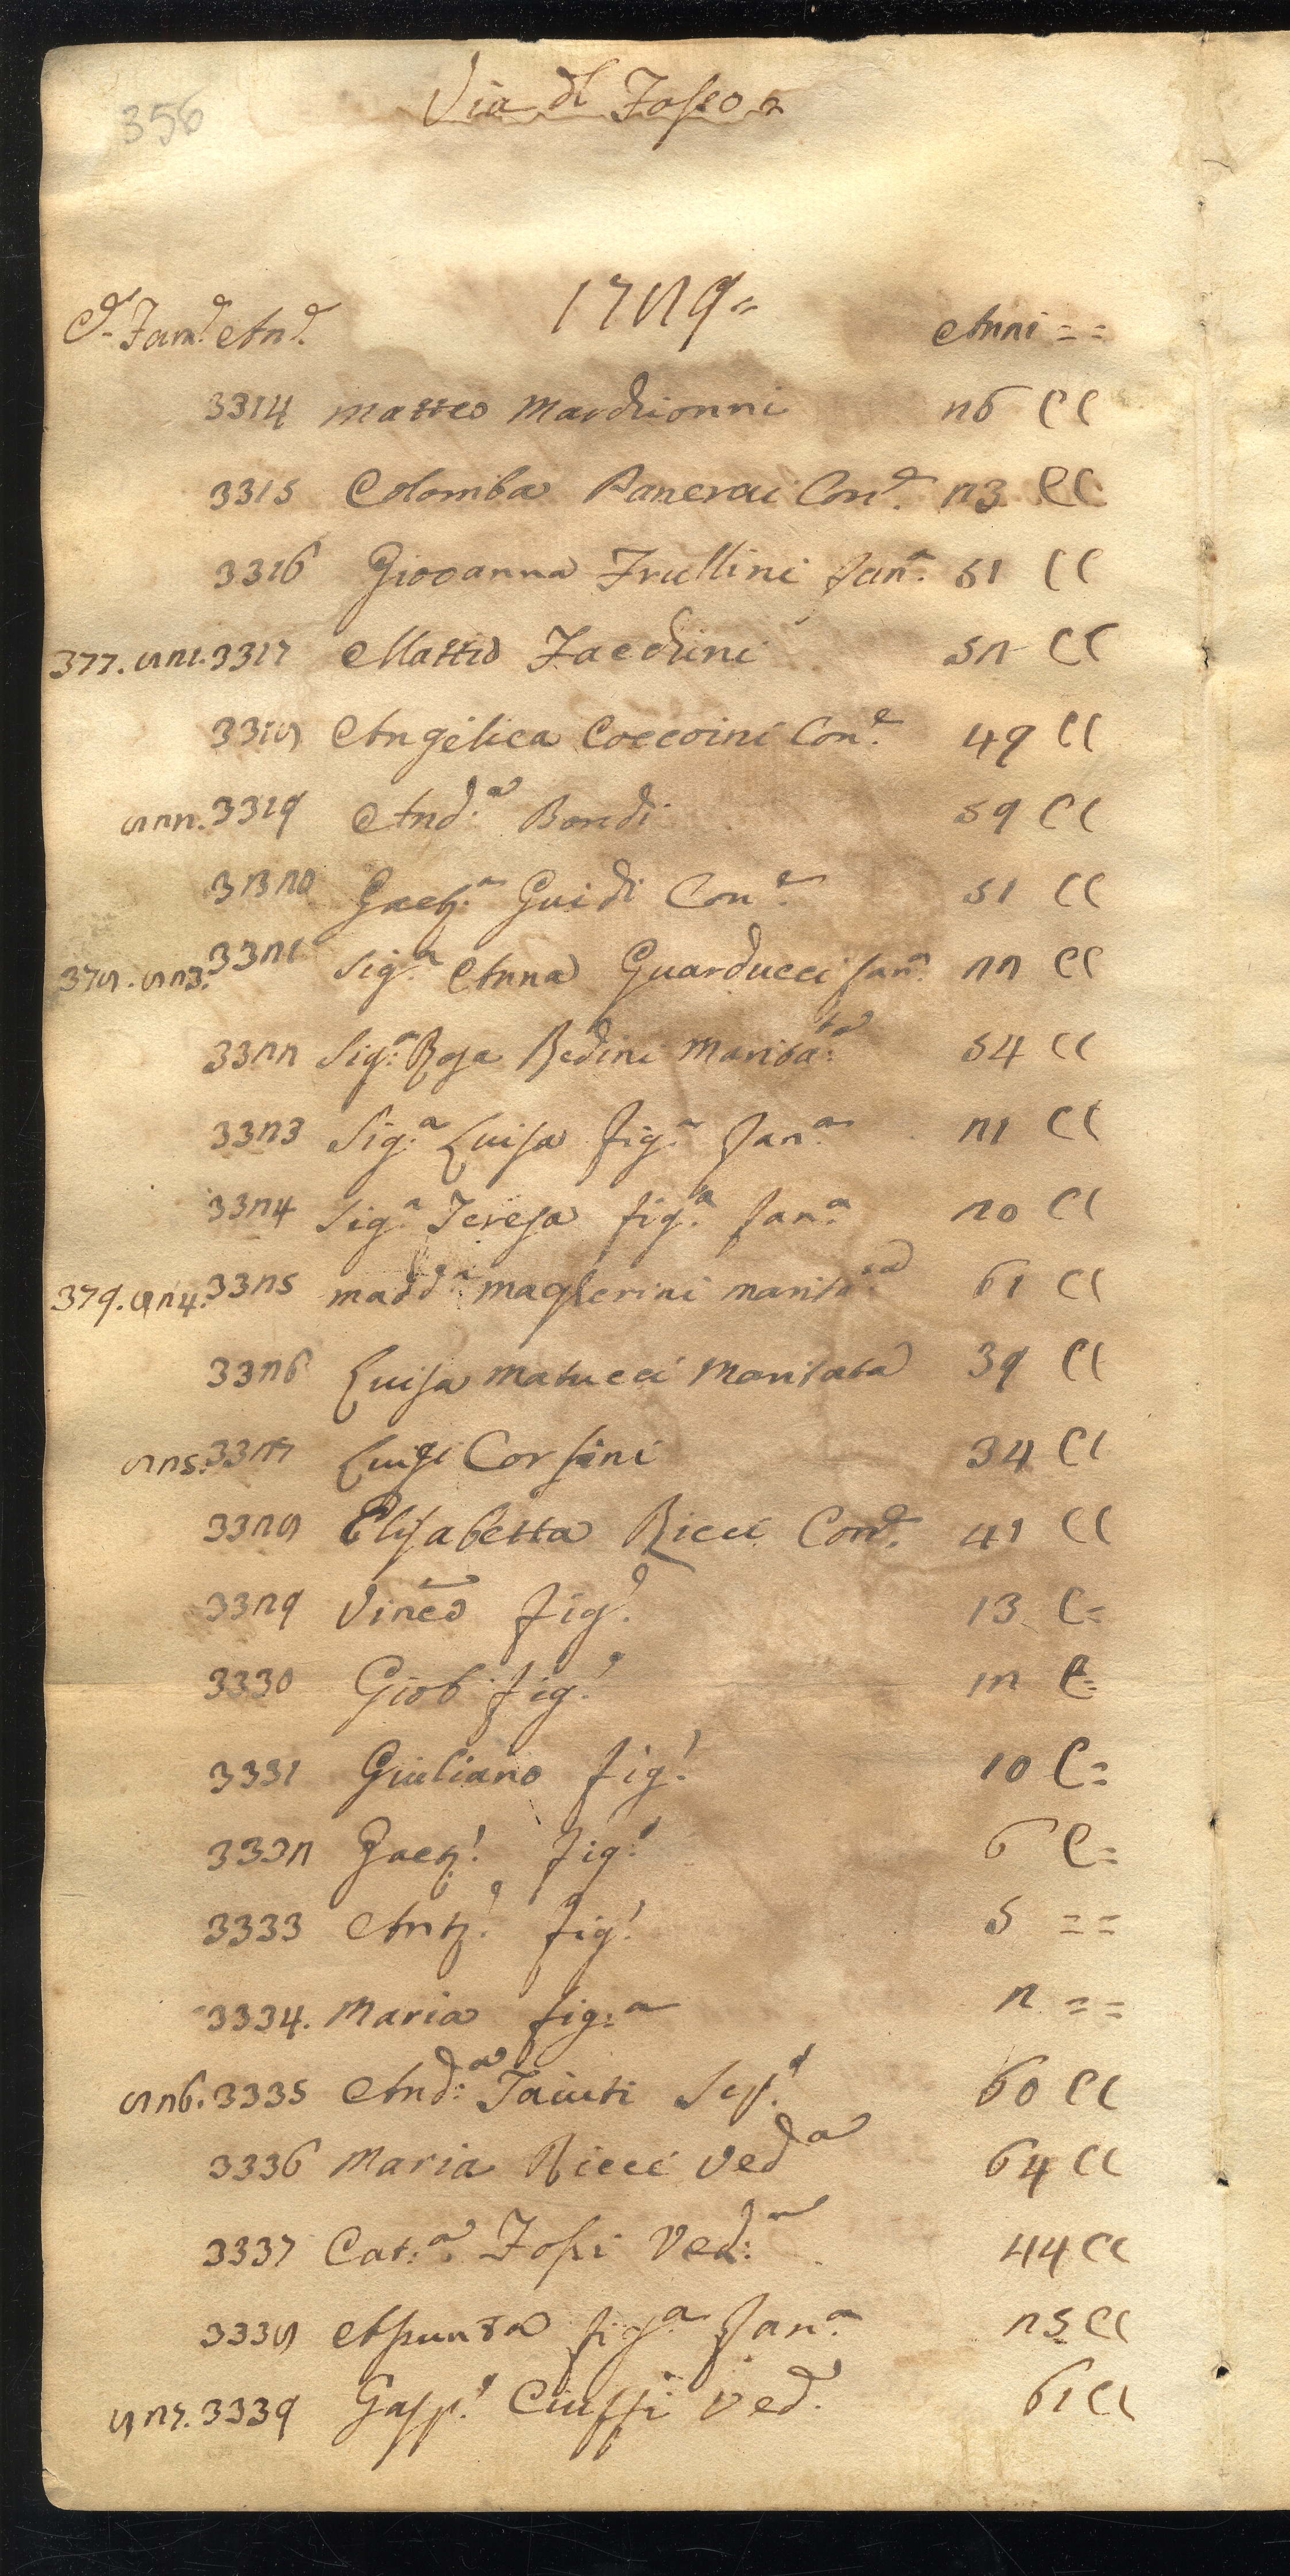 356
Via dl Fosso
1789=
Ce. Fam.e An.e Anni = =
3314 Matteo Marchionni 26 CC
3315 Colomba Panerai Con.e 23 CC
3316 Giovanna Frullini fan.a 51 CC
377. 821. 3317 Mattio Facchini 52 CC
3318 Angelica Coccoini Con.e 49 CC
822. 3319 And.a Bondi 59 CC
3320 Gaet.a Guidi Con.e 51 CC
378. 823. 3321 Sig.a Anna Guarducci fan.a 22 CC
3322 Sig.a Rosa Bedini Marita.ta 54 CC
3323 Sig.a Luisa fig.a fan.a 21 CC
3324 Sig.a Teresa fig.a fan.a 20 CC
379. 824. 3325 Madd.a Magherini marita.ta 61 CC
3326 Luisa Matucci Maritata 39 CC
825. 3327 Luigi Corsini 34 CC
3328 Elisabetta Ricci Con.e 41 CC
3329 Vinc.o fig.o 13 C=
3330 Giob fig.o 12 C=
3331 Giuliano fig.o 10 C=
3332 Gaet.o fig.o 6 C=
3333 Ant.o fig.o 5 = =
3334. Maria fig.a 2 = =
826. 3335 And.a Taiuti Sep.o 60 CC
3336 Maria Ricci Ved.a 64 CC
3337 Cat.a Fossi Ved.a 44 CC
3338 Assunta fig.a fan.a 25 CC
827. 3339 Gasp.o Ciuffi Ved. 61 CC